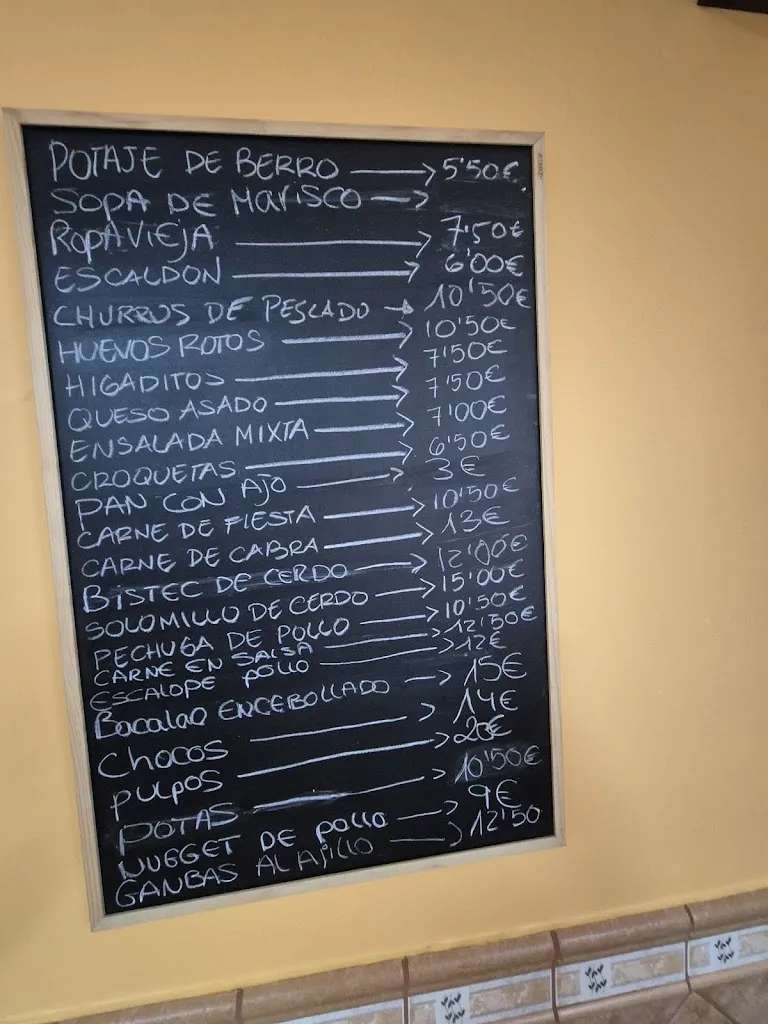 POTAJE DE BERRO → 5'50€
SOPA DE MARISCO →
ROPAVIEJA → 7'50€
ESCALDON → 6'00€
CHURROS DE PESCADO → 10'50€
HUEVOS ROTOS → 10'50€
HIGADITOS → 7'50€
QUESO ASADO → 7'50€
ENSALADA MIXTA → 7'00€
CROQUETAS → 6'50€
PAN CON AJO → 3€
CARNE DE FIESTA → 10'50€
CARNE DE CABRA → 13€
BISTEC DE CERDO → 12'00€
SOLOMILLO DE CERDO → 15'00€
PECHUGA DE POLLO → 10'50€
CARNE EN SALSA → 12'50€
ESCALOPE POLLO → 12€
Bacalao ENCEBOLLADO → 15€
CHOCOS → 14€
PULPOS → 20€
POTAS → 10'50€
NUGGET DE POLLO → 9€
GANBAS AL AJILLO → 12'50